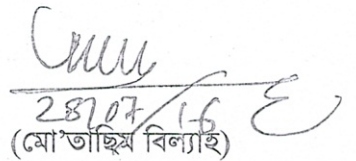 28/07/16
(মো'তাছিম বিল্যাহ)